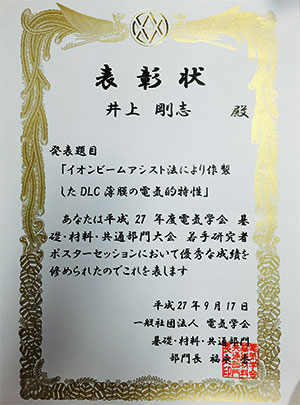 表彰状
井上 剛志 殿
発表題目
「イオンビームアシスト法により作製
したDLC薄膜の電気的特性」
あなたは平成 27 年度電気学会 基
礎・材料・共通部門大会 若手研究者
ポスターセッションにおいて優秀な成績を
修められたのでこれを表します
平成27年9月17日
一般社団法人 電気学会
基礎・材料・共通部門
部門長 福